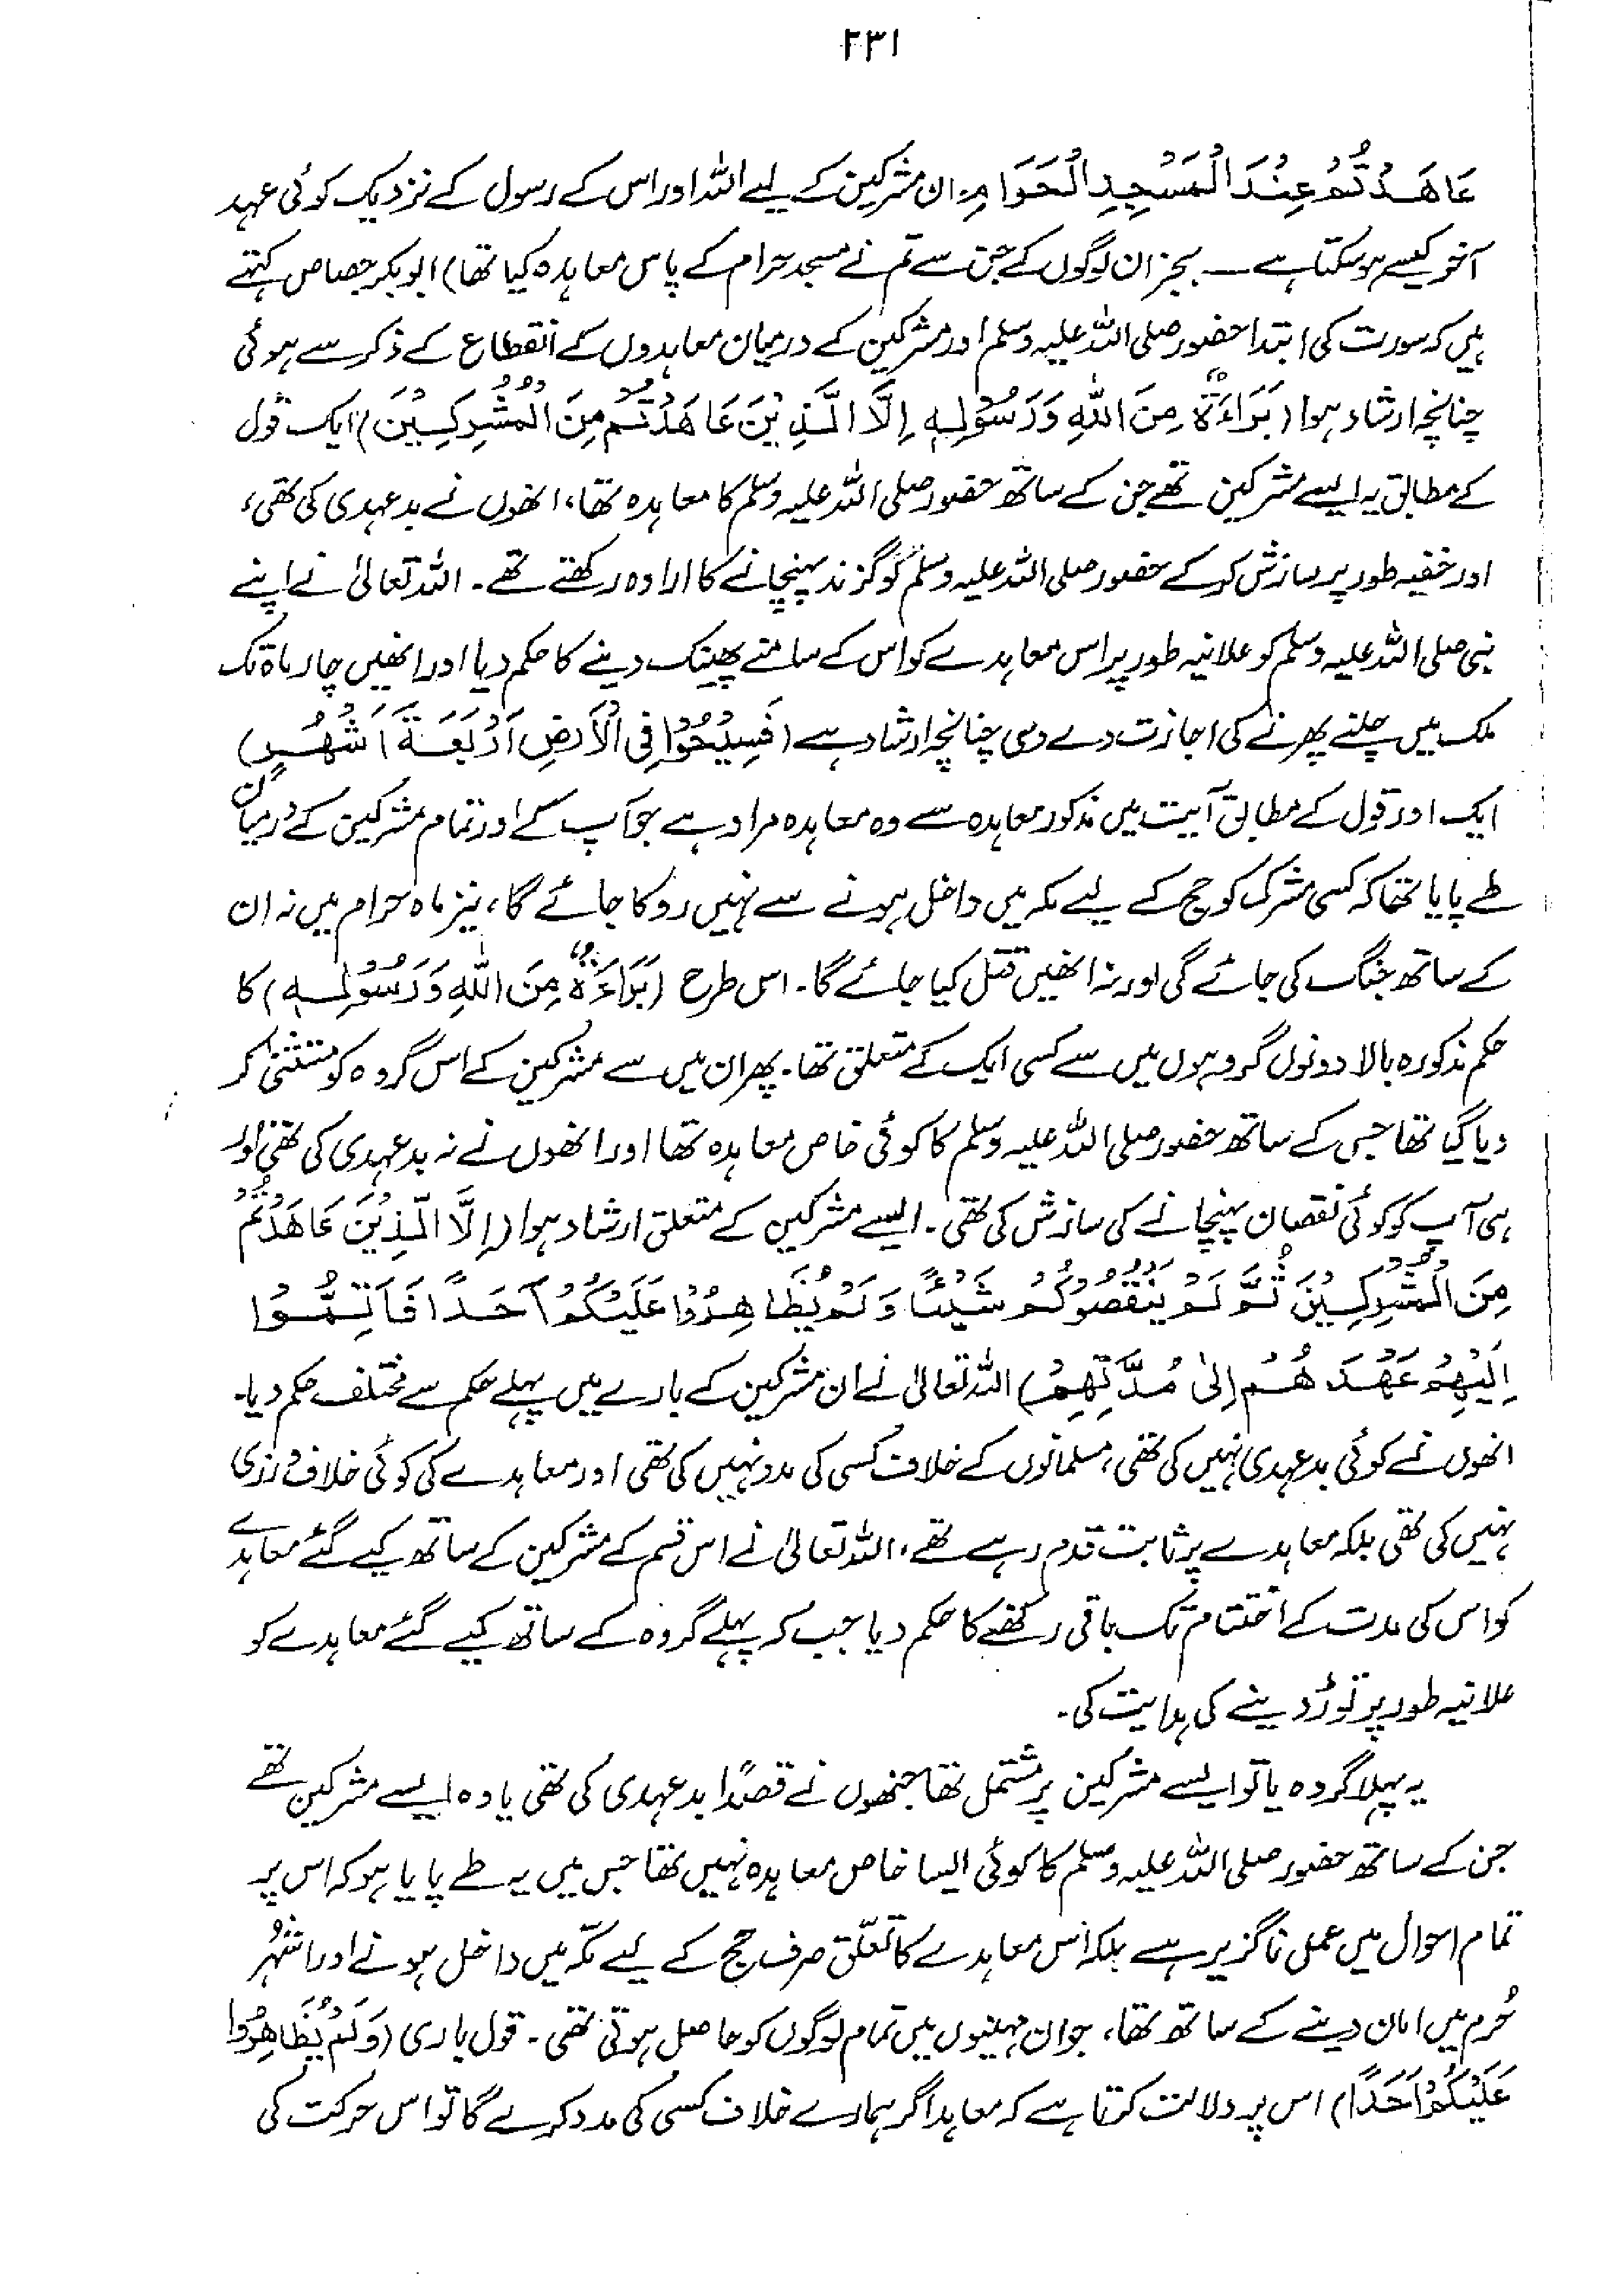 ۲۳۱
عَاهَدْتُمْ عِنْدَ الْمَسْجِدِ الْحَرَامِ، ان مشرکین کے لیے اللہ اور اس کے رسول کے نزدیک کوئی عہد
آخر کیسے ہو سکتا ہے ــ بجز ان لوگوں کے جن سے تم نے مسجد حرام کے پاس معاہدہ کیا تھا) ابوبکر جصاص کہتے
ہیں کہ سورت کی ابتدا حضور صلی اللہ علیہ وسلم اور مشرکین کے درمیان معاہدوں کے انقطاع کے ذکر سے ہوئی
چنانچہ ارشاد ہوا (بَرَاءَةٌ مِنَ اللهِ وَرَسُوْلِهِ اِلَّا الَّذِيْنَ عَاهَدْتُمْ مِنَ الْمُشْرِكِيْنَ) ایک قول
کے مطابق یہ ایسے مشرکین تھے جن کے ساتھ حضور صلی اللہ علیہ وسلم کا معاہدہ تھا، انھوں نے بدعہدی کی تھی،
اور خفیہ طور پر سازش کر کے حضور صلی اللہ علیہ وسلم کو گزند پہنچانے کا ارادہ رکھتے تھے۔ اللہ تعالیٰ نے اپنے
نبی صلی اللہ علیہ وسلم کو علانیہ طور پر اس معاہدے کو اس کے سامنے پھینک دینے کا حکم دیا اور انھیں چار ماہ تک
ملک میں چلنے پھرنے کی اجازت دے دی چنانچہ ارشاد ہے (فَسِيْحُوْا فِى الْاَرْضِ اَرْبَعَةَ اَشْهُرٍ)
ایک اور قول کے مطابق آیت میں مذکور معاہدہ سے وہ معاہدہ مراد ہے جو آپ کے اور تمام مشرکین کے درمیان
طے پایا تھا کہ کسی مشرک کو حج کے لیے مکہ میں داخل ہونے سے نہیں روکا جائے گا، نیز ماہ حرام میں نہ ان
کے ساتھ جنگ کی جائے گی اور نہ انھیں قتل کیا جائے گا۔ اس طرح (بَرَاءَةٌ مِنَ اللهِ وَرَسُوْلِهِ) کا
حکم مذکورہ بالا دونوں گروہوں میں سے کسی ایک کے متعلق تھا۔ پھر ان میں سے مشرکین کے اس گروہ کو مستثنیٰ کر
دیا گیا تھا جس کے ساتھ حضور صلی اللہ علیہ وسلم کا کوئی خاص معاہدہ تھا اور انھوں نے نہ بدعہدی کی تھی اور
ہی آپ کو کوئی نقصان پہنچانے کی سازش کی تھی۔ ایسے مشرکین کے متعلق ارشاد ہوا (اِلَّا الَّذِيْنَ عَاهَدْتُمْ
مِنَ الْمُشْرِكِيْنَ ثُمَّ لَمْ يَنْقُصُوْكُمْ شَيْئًا وَلَمْ يُظَاهِرُوْا عَلَيْكُمْ اَحَدًا فَاَتِمُّوْا
اِلَيْهِمْ عَهْدَهُمْ اِلٰى مُدَّتِهِمْ) اللہ تعالیٰ نے ان مشرکین کے بارے میں پہلے حکم سے مختلف حکم دیا۔
انھوں نے کوئی بدعہدی نہیں کی تھی، مسلمانوں کے خلاف کسی کی مدد نہیں کی تھی اور معاہدے کی کوئی خلاف ورزی
نہیں کی تھی بلکہ معاہدے پر ثابت قدم رہے تھے، اللہ تعالیٰ نے اس قسم کے مشرکین کے ساتھ کیے گئے معاہدے
کو اس کی مدت کے اختتام تک باقی رکھنے کا حکم دیا جب کہ پہلے گروہ کے ساتھ کیے گئے معاہدے کو
علانیہ طور پر توڑ دینے کی ہدایت کی۔
یہ پہلا گروہ یا تو ایسے مشرکین پر مشتمل تھا جنھوں نے قصدًا بدعہدی کی تھی یا وہ ایسے مشرکین تھے
جن کے ساتھ حضور صلی اللہ علیہ وسلم کا کوئی ایسا خاص معاہدہ نہیں تھا جس میں یہ طے پایا ہو کہ اس پر
تمام احوال میں عمل ناگزیر ہے بلکہ اس معاہدے کا تعلّق صرف حج کے لیے مکّہ میں داخل ہونے اور اشہُر
حُرم میں امان دینے کے ساتھ تھا، جو ان مہینوں میں تمام لوگوں کو حاصل ہوتی تھی۔ قول باری (وَلَمْ يُظَاهِرُوْا
عَلَيْكُمْ اَحَدًا) اس پر دلالت کرتا ہے کہ معاہد اگر ہمارے خلاف کسی کی مدد کرے گا تو اس حرکت کی